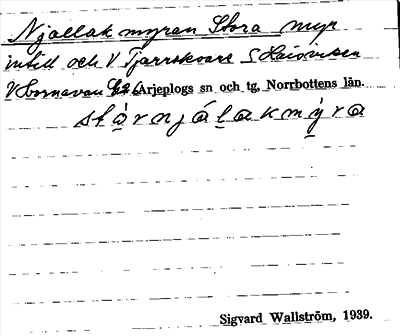 Njallakmyren Stora myr
intill och V Tjarrskvare S Haivinsen
V Hornavan Arjeplogs sn och tg, Norrbottens län.
stòrnjálakmy̌ra
Sigvard Wallström, 1939.